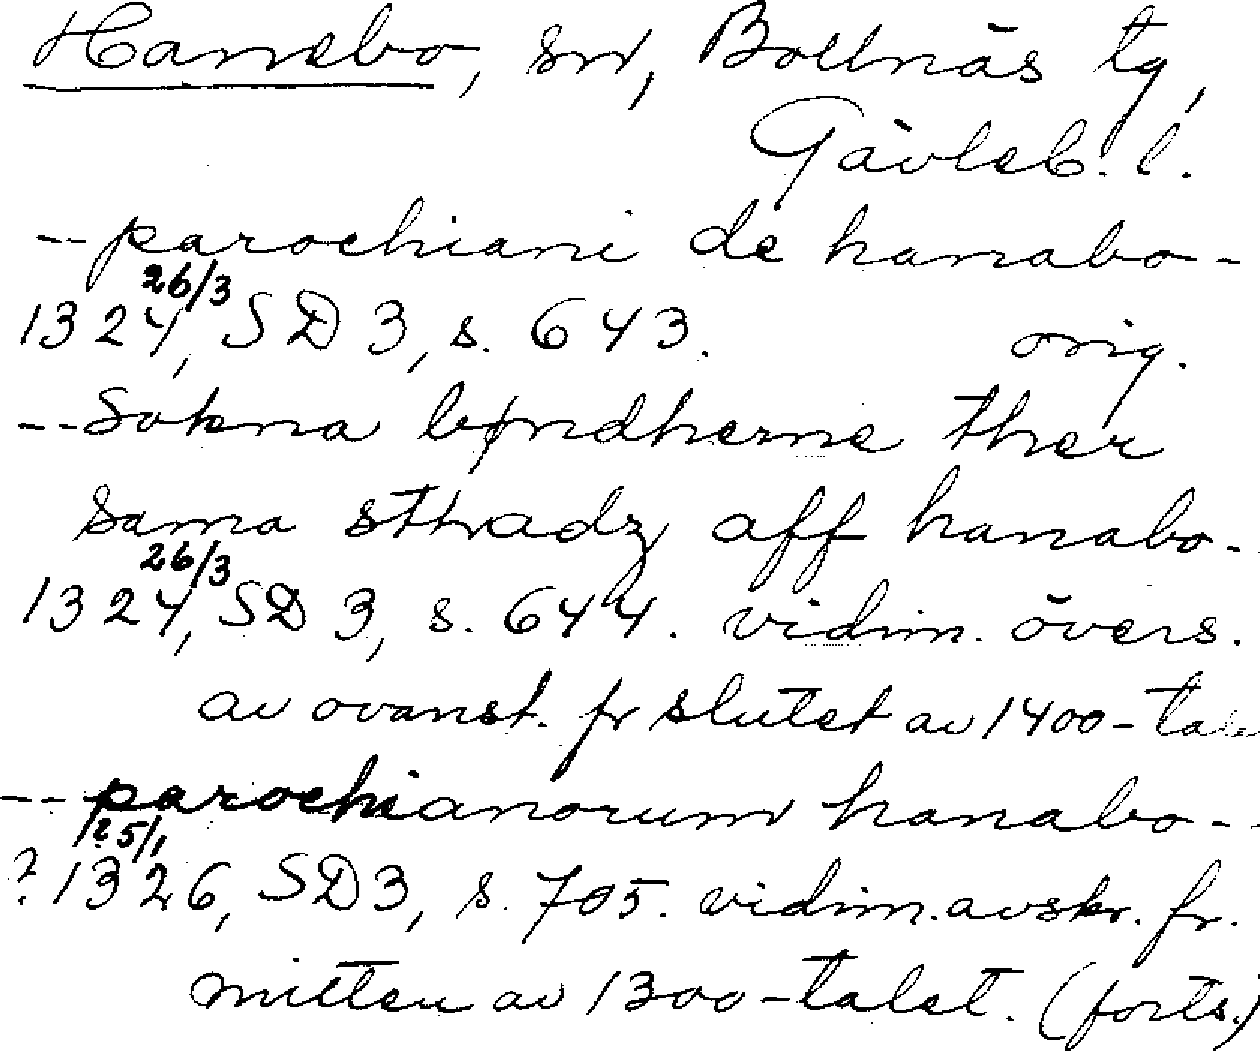 Hanebo, sn, Bollnäs tg,
Gävleb. l.
-- parochiani de hanabo -
26/3
1324, SD 3, s. 643. orig.
-- Sokna bøndherne ther
sama sthadz aff hanabo -
26/3
1324, SD 3, s. 644. vidim. övers.
av ovanst. fr slutet av 1400-talet
-- parochianorum hanabo --
25/1
? 1326, SD3, s. 705. vidim. avskr. fr.
mitten av 1300-talet. (forts.)